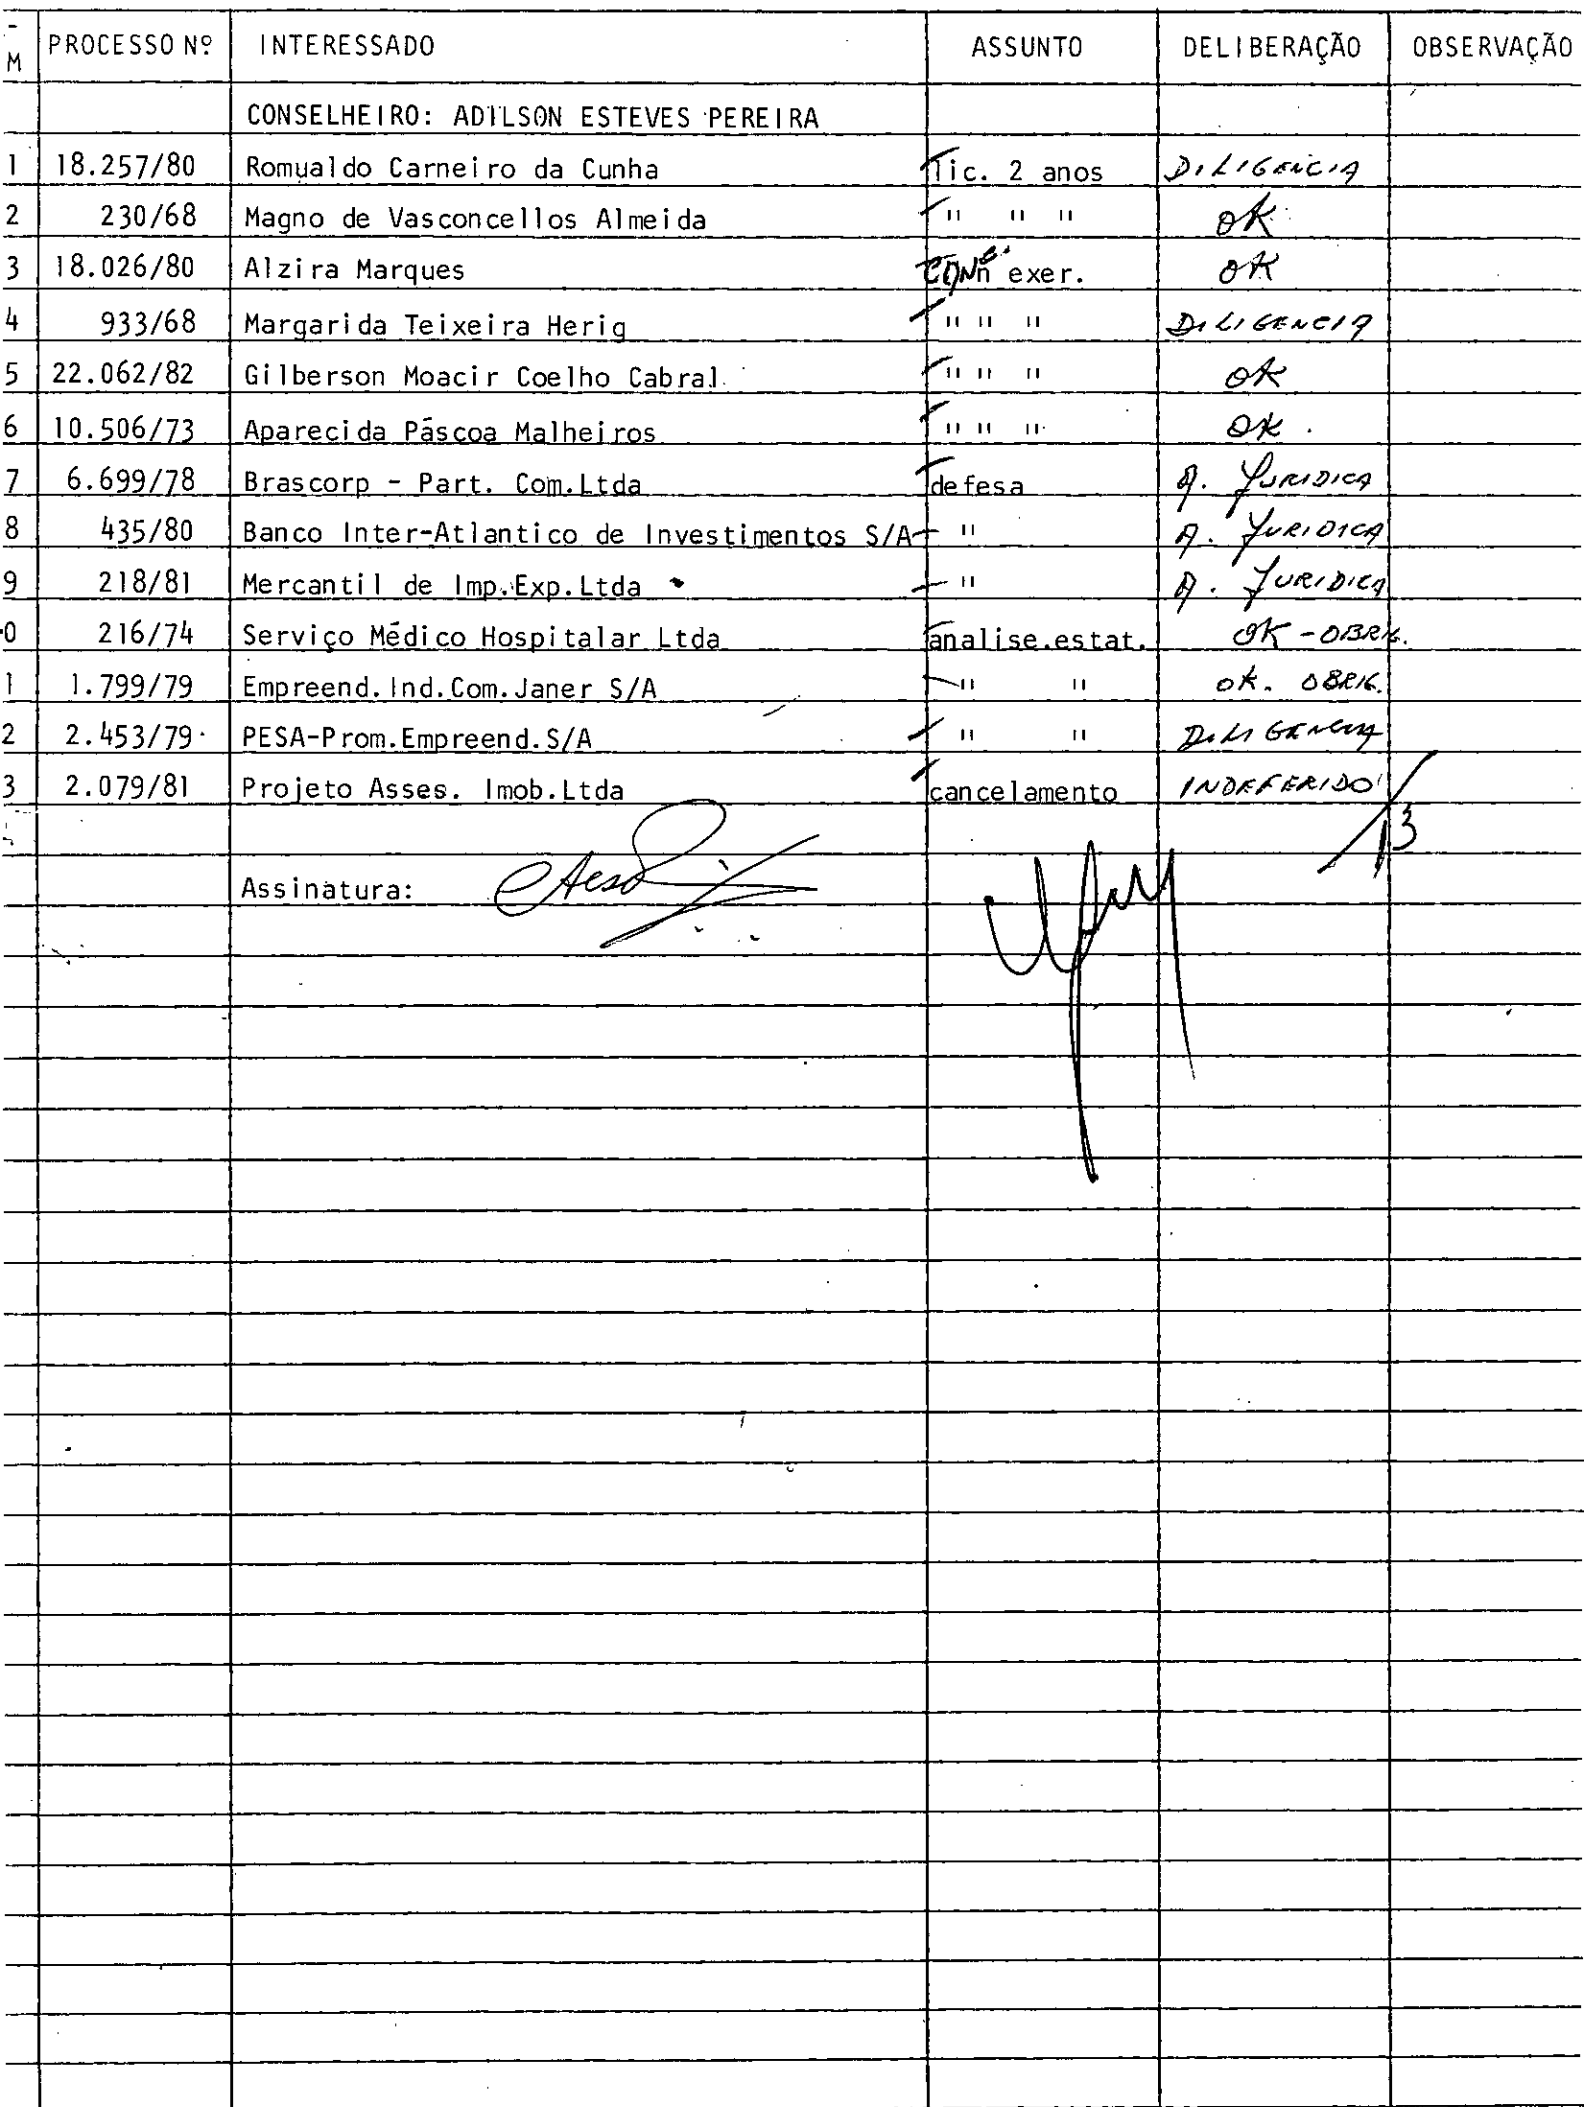 - M PROCESSO Nº INTERESSADO ASSUNTO DELIBERAÇÃO OBSERVAÇÃO
CONSELHEIRO: ADILSON ESTEVES PEREIRA
1 18.257/80 Romualdo Carneiro da Cunha lic. 2 anos DILIGENCIA
2 230/68 Magno de Vasconcellos Almeida " " " OK
3 18.026/80 Alzira Marques exer. OK
4 933/68 Margarida Teixeira Herig " " " DILIGENCIA
5 22.062/82 Gilberson Moacir Coelho Cabral " " " OK
6 10.506/73 Aparecida Páscoa Malheiros " " " OK.
7 6.699/78 Brascorp - Part. Com.Ltda defesa A. JURIDICA
8 435/80 Banco Inter-Atlantico de Investimentos S/A " A. JURIDICA
9 218/81 Mercantil de Imp.Exp.Ltda " A. JURIDICA
0 216/74 Serviço Médico Hospitalar Ltda analise.estat. OK - OBRIG.
1 1.799/79 Empreend.Ind.Com.Janer S/A " " OK. OBRIG.
2 2.453/79 PESA-Prom.Empreend.S/A " " DILIGENCIA
3 2.079/81 Projeto Asses. Imob.Ltda cancelamento INDEFERIDO
13
Assinatura: